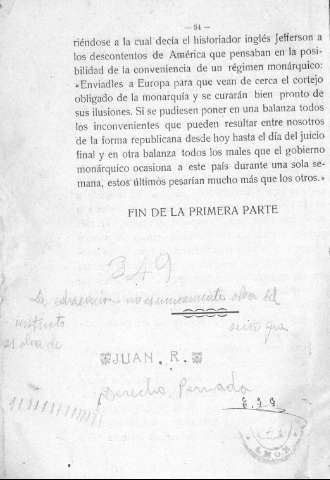 — 54 —
riéndose a la cual decía el historiador inglés Jefferson a
los descontentos de América que pensaban en la posi-
bilidad de la conveniencia de un régimen monárquico:
«Enviadles a Europa para que vean de cerca el cortejo
obligado de la monarquía y se curarán bien pronto de
sus ilusiones. Si se pudiesen poner en una balanza todos
los inconvenientes que pueden resultar entre nosotros
de la forma republicana desde hoy hasta el día del juicio
final y en otra balanza todos los males que el gobierno
monárquico ocasiona a este país durante una sola se-
mana, estos últimos pesarían mucho más que los otros.»
FIN DE LA PRIMERA PARTE
349
La educación no es unicamente obra del
instituto
sino que
es obra de
JUAN. R.
Derecho